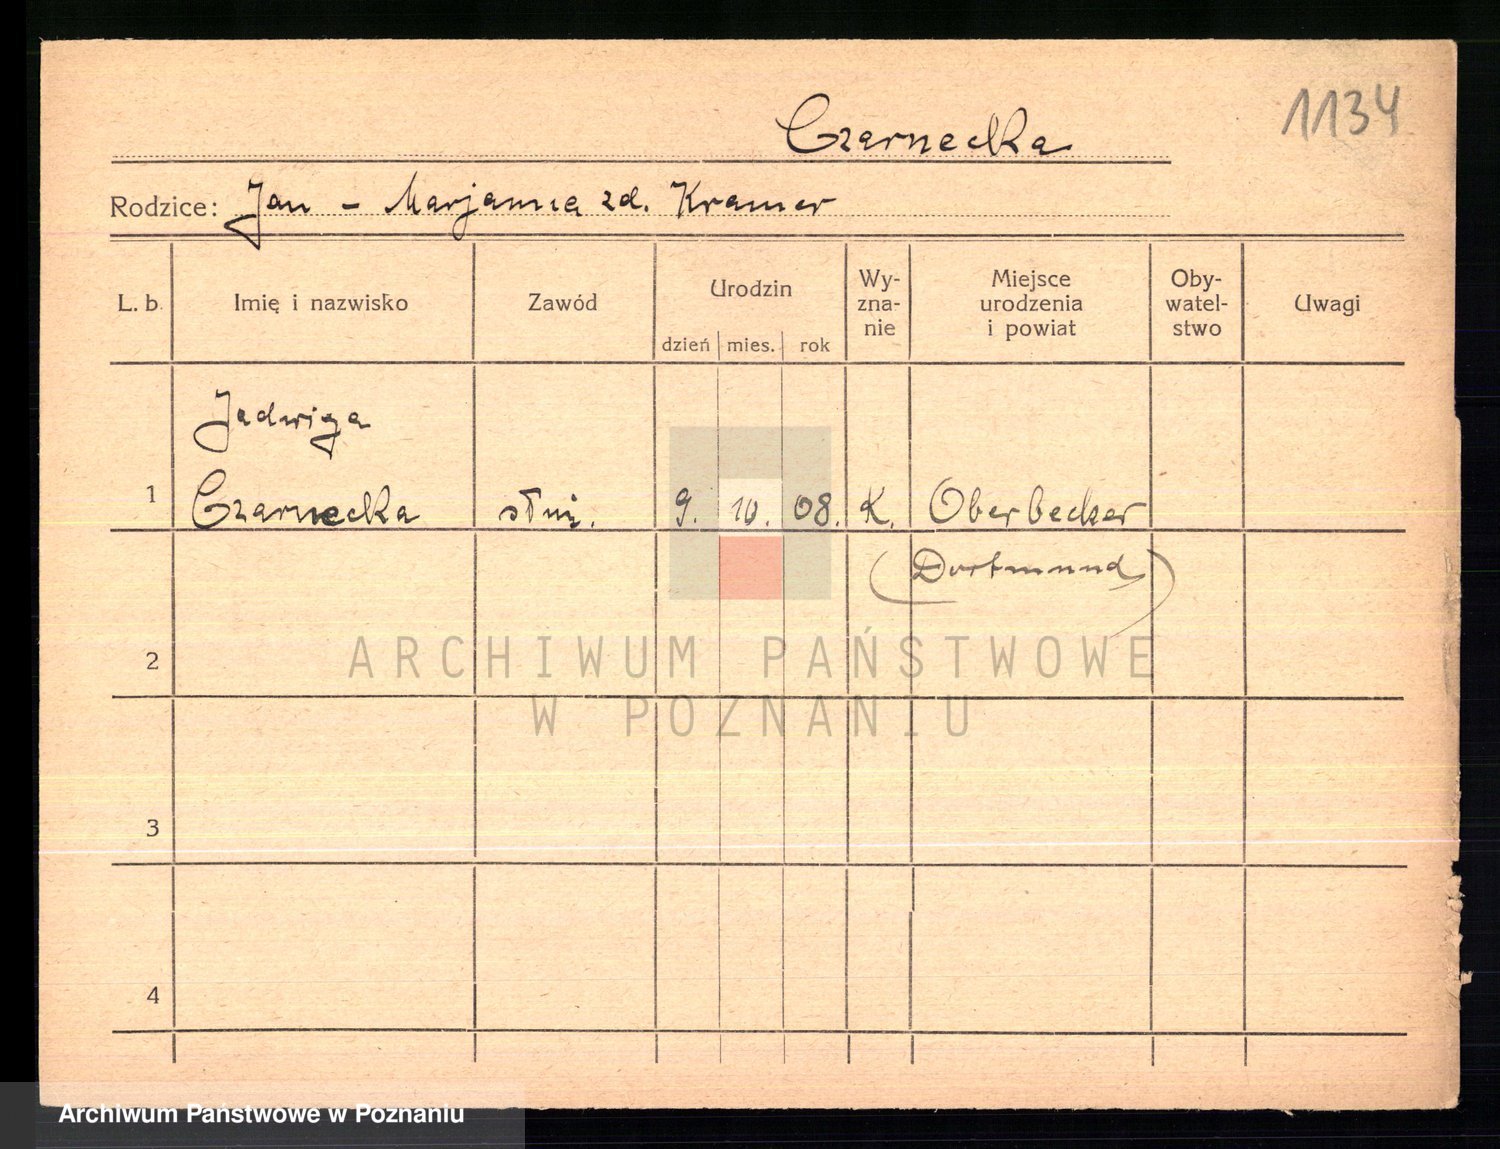 1134
Czarnecka
Rodzice: Jan - Marjanna zd. Kramer
L. b. Imię i nazwisko Zawód Urodzin Wy- Miejsce Oby- Uwagi
zna- urodzenia watel-
nie i powiat stwo
dzień mies. rok
Jadwiga
1 Czarnecka służ. 9. 10. 08. K. Oberbecker
(Dortmund)
2
ARCHIWUM PAŃSTWOWE
W POZNANIU
3
4
Archiwum Państwowe w Poznaniu